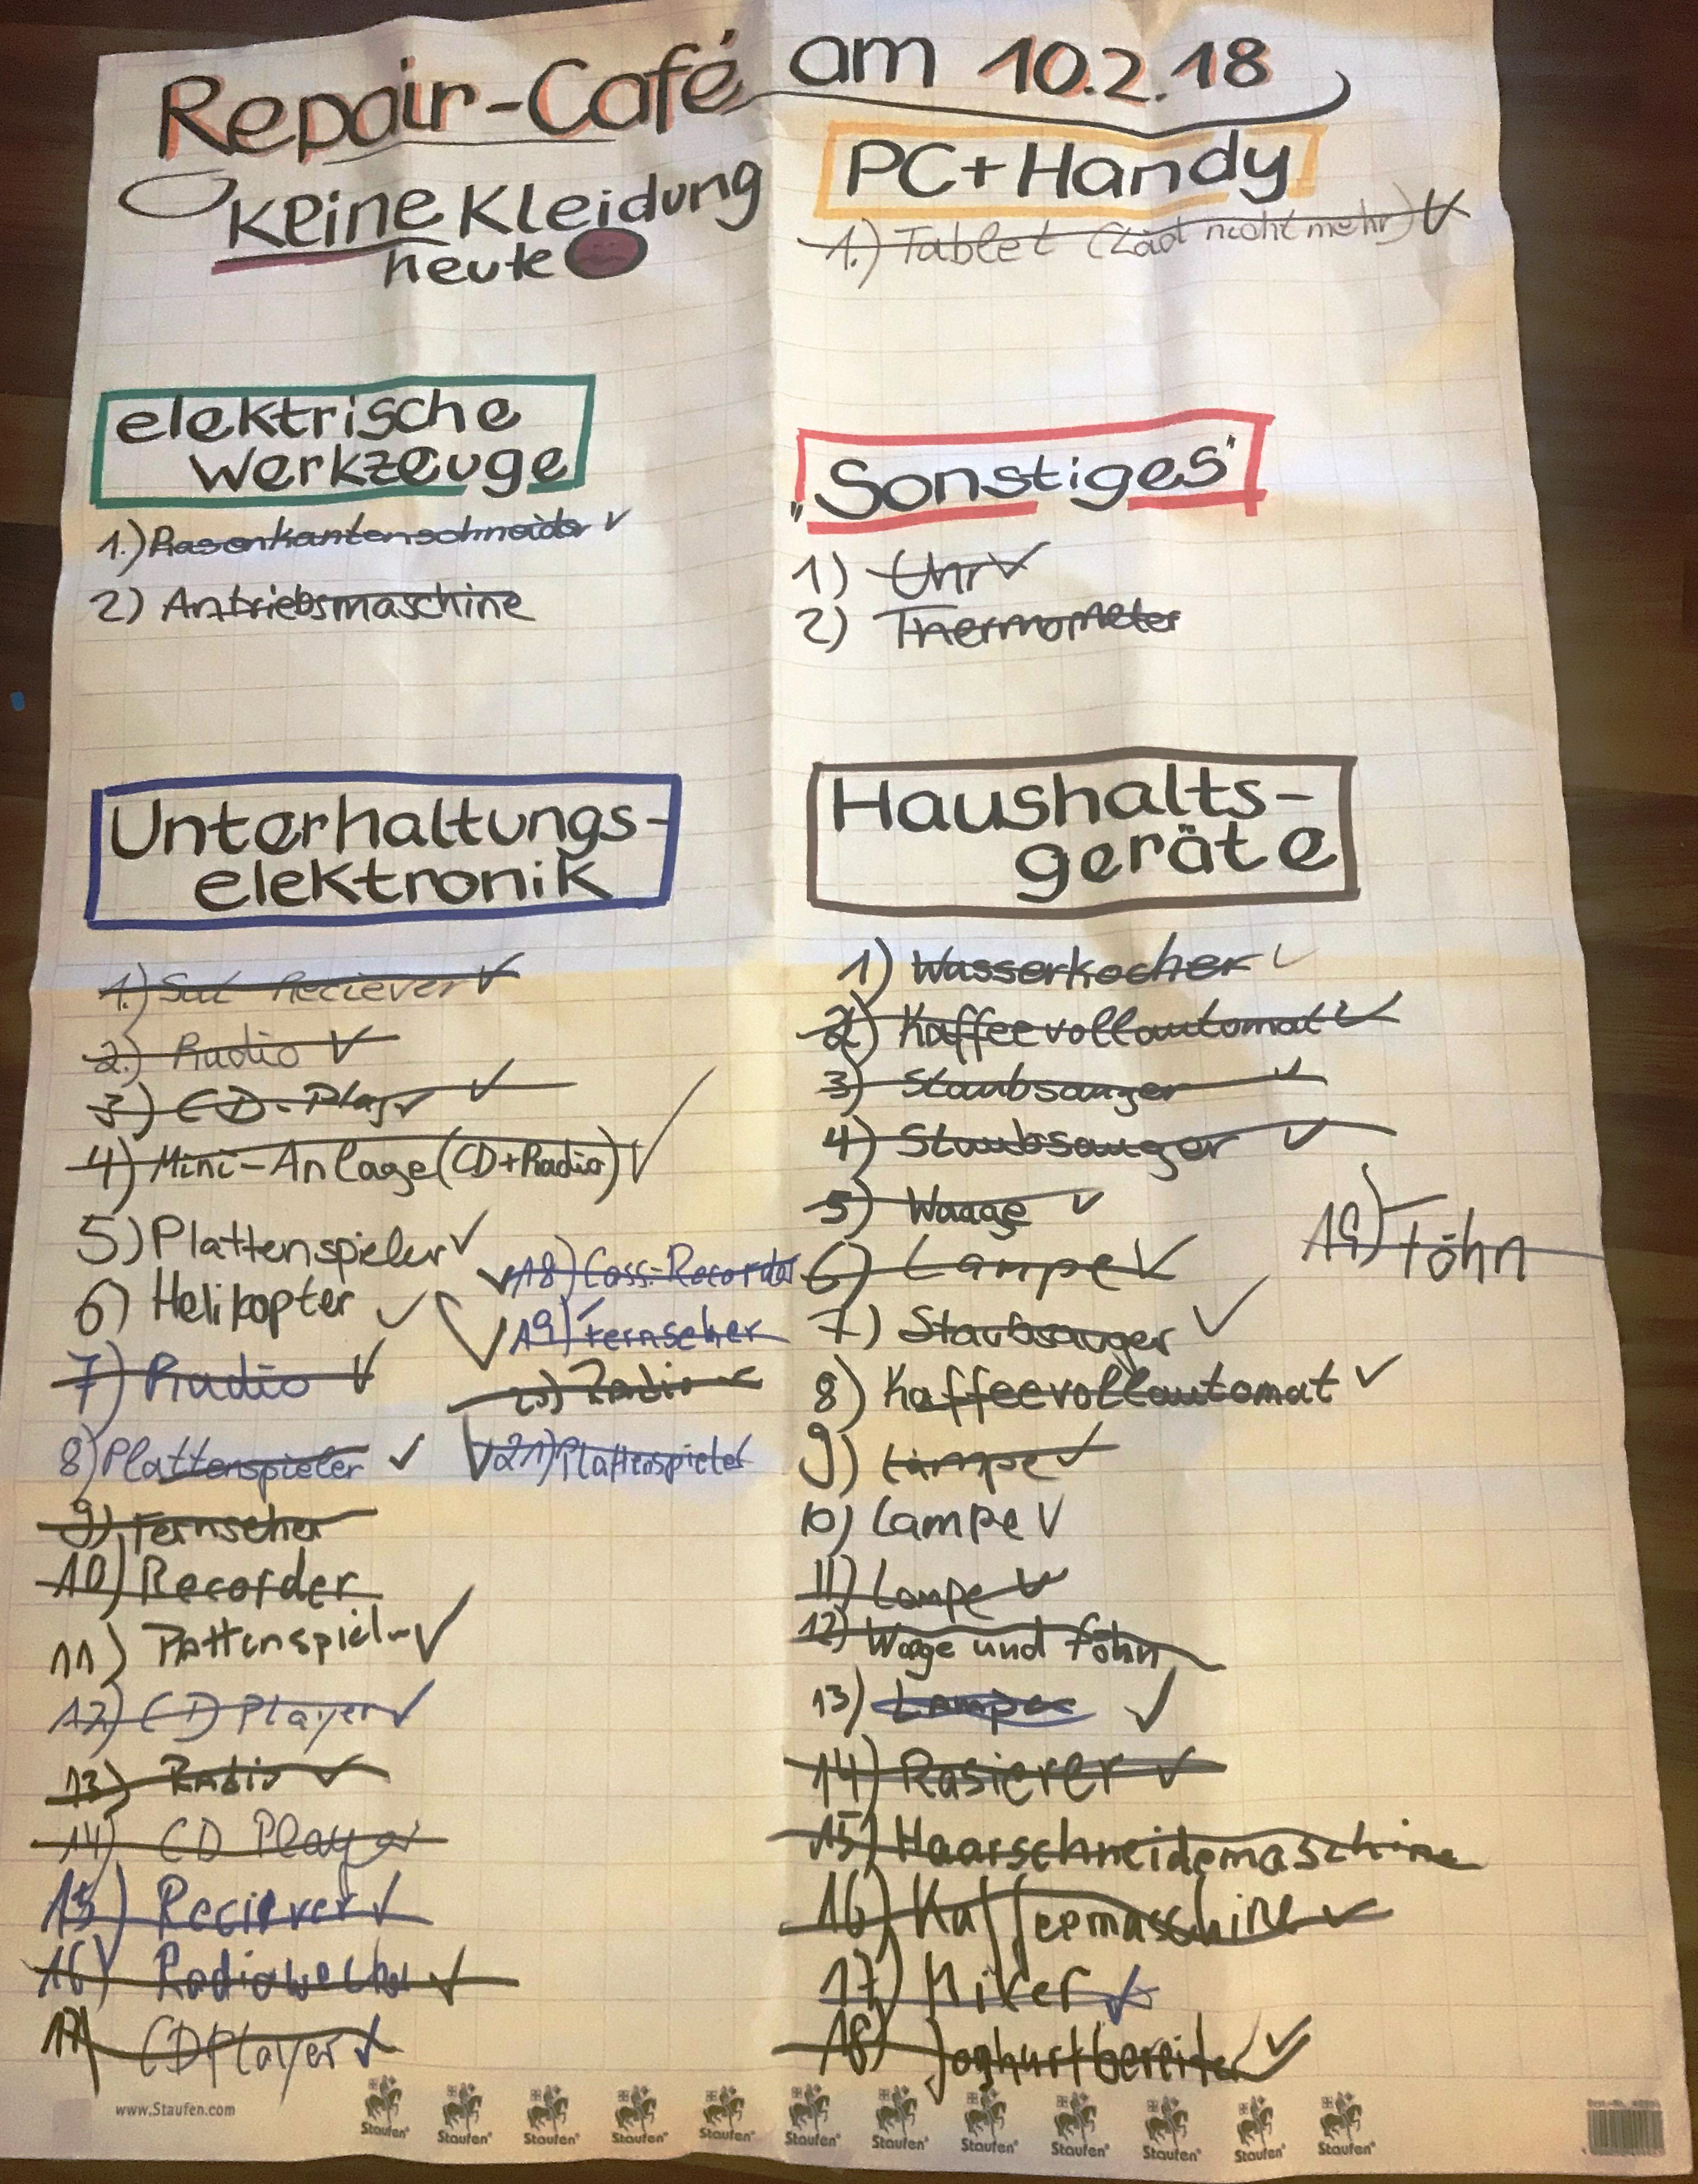 Repair-Café am 10.2.18
Keine Kleidung
heute
PC+Handy
1.) Tablet (Läd nicht mehr) ✓
elektrische
Werkzeuge
1.) Rasenkantenschneider ✓
2) Antriebsmaschine
"Sonstiges"
1) Uhr ✓
2) Thermometer
Unterhaltungs-
elektronik
1.) Sat Reciever ✓
2.) Radio ✓
3) CD-Player ✓
4) Mini-Anlage (CD+Radio) ✓
5) Plattenspieler ✓
6) Helikopter ✓
7) Radio ✓
8) Plattenspieler ✓
9) Fernseher
10) Recorder
11) Plattenspieler ✓
12) CD Player ✓
13) Radio ✓
14) CD Player
15) Reciever ✓
16) Radiowecker ✓
17) CD Player ✓
✓ 18) Cass.-Recorder
✓ 19) Fernseher
20) Radio ✓
✓ 21) Plattenspieler
Haushalts-
geräte
1) Wasserkocher ✓
2) Kaffeevollautomat ✓
3) Staubsauger ✓
4) Staubsauger ✓
5) Waage ✓
6) Lampe ✓
7) Staubsauger ✓
8) Kaffeevollautomat ✓
9) Lampe ✓
10) Lampe ✓
11) Lampe ✓
12) Wage und Föhn
13) Lampe ✓
14) Rasierer ✓
15) Haarschneidemaschine
16) Kaffeemaschine ✓
17) Mixer ✓
18) Joghurtbereiter ✓
19) Föhn
www.Staufen.com
Staufen Staufen Staufen Staufen Staufen Staufen Staufen Staufen Staufen Staufen Staufen Staufen